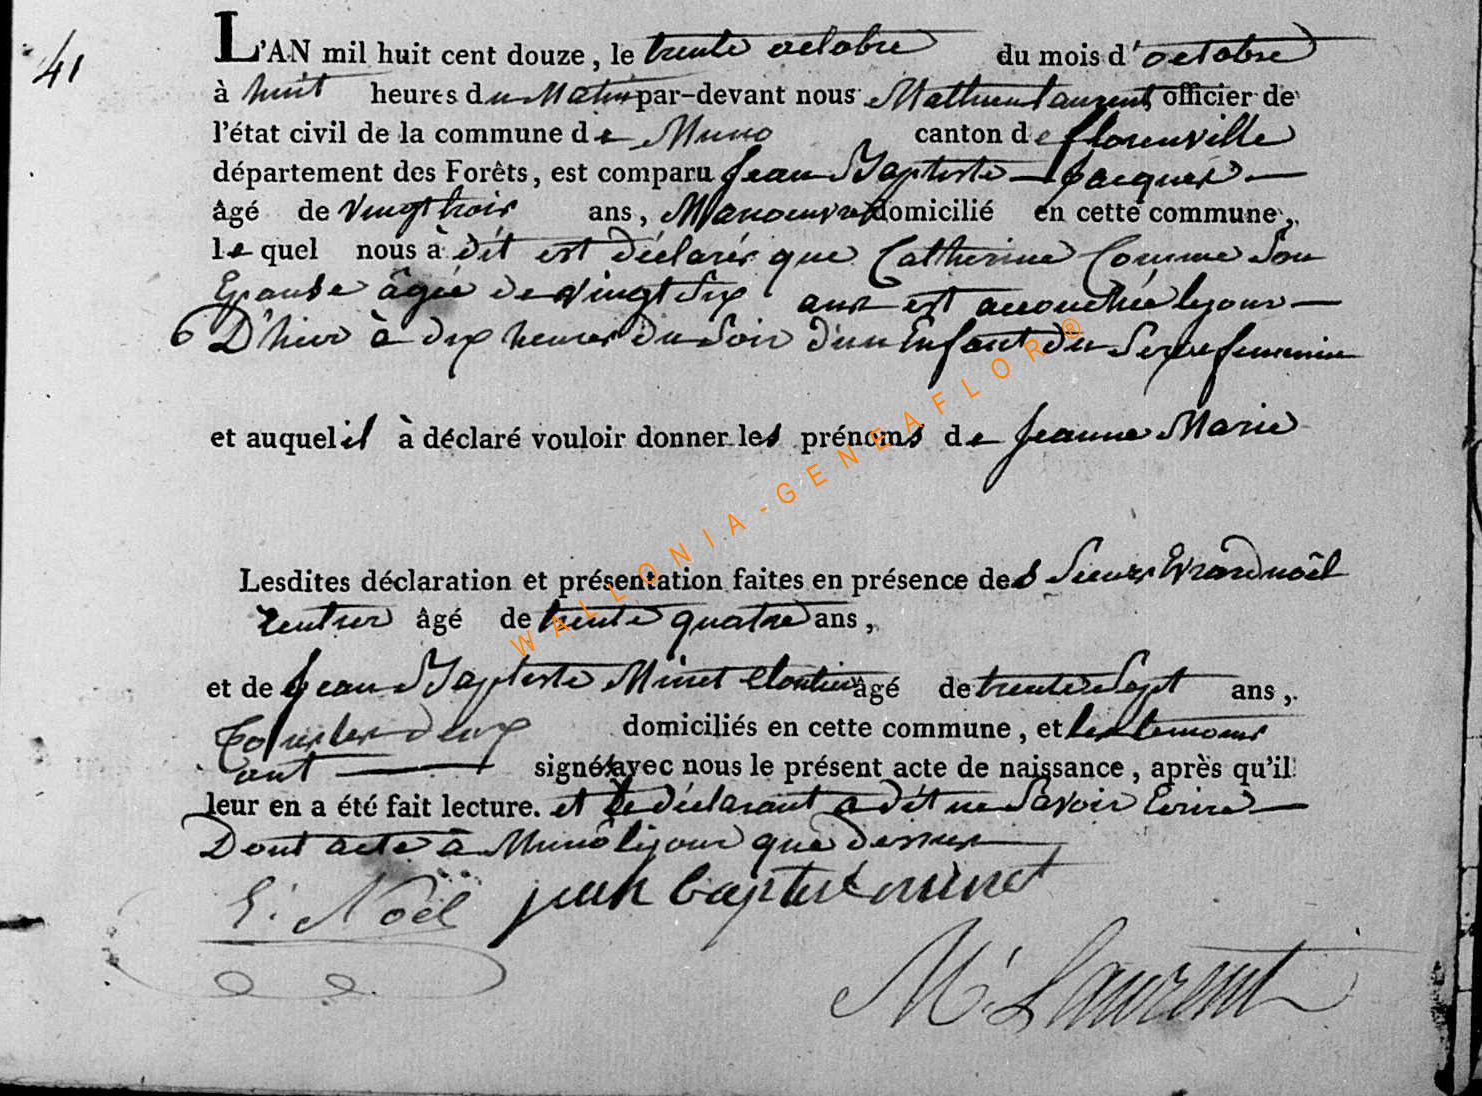 41
L'AN mil huit cent douze, le trente octobre du mois d'octobre
à huit heures du Matin par-devant nous Mathieu Laurent officier de
l'état civil de la commune de Muno canton de florenville
département des Forêts, est comparu Jean Baptiste Jacques
âgé de Vingt trois ans, Manoeuvre domicilié en cette commune,
le quel nous à dit est déclarés que Catherine Comme Son
Epouse âgée de vingt Six ans est accouchée lejour
D'hier à dix heures du Soir d'un Enfant du Sexe feminin
et auquel il à déclaré vouloir donner les prénoms de Jeanne Marie
Lesdites déclaration et présentation faites en présence des Sieurs Evrard noël
rentier âgé de trente quatre ans,
et de Jean Baptiste Minet âgé de trente Sept ans,
Tous les deux domiciliés en cette commune, et les temoins
ont signé avec nous le présent acte de naissance, après qu'il
leur en a été fait lecture. et le déclarant a dit ne Savoir Ecrire
Dont acte à Muno lejour que dessus
E. Noël jean baptiste minet
M. Laurent
WALLONIA-GENEAFLOR®